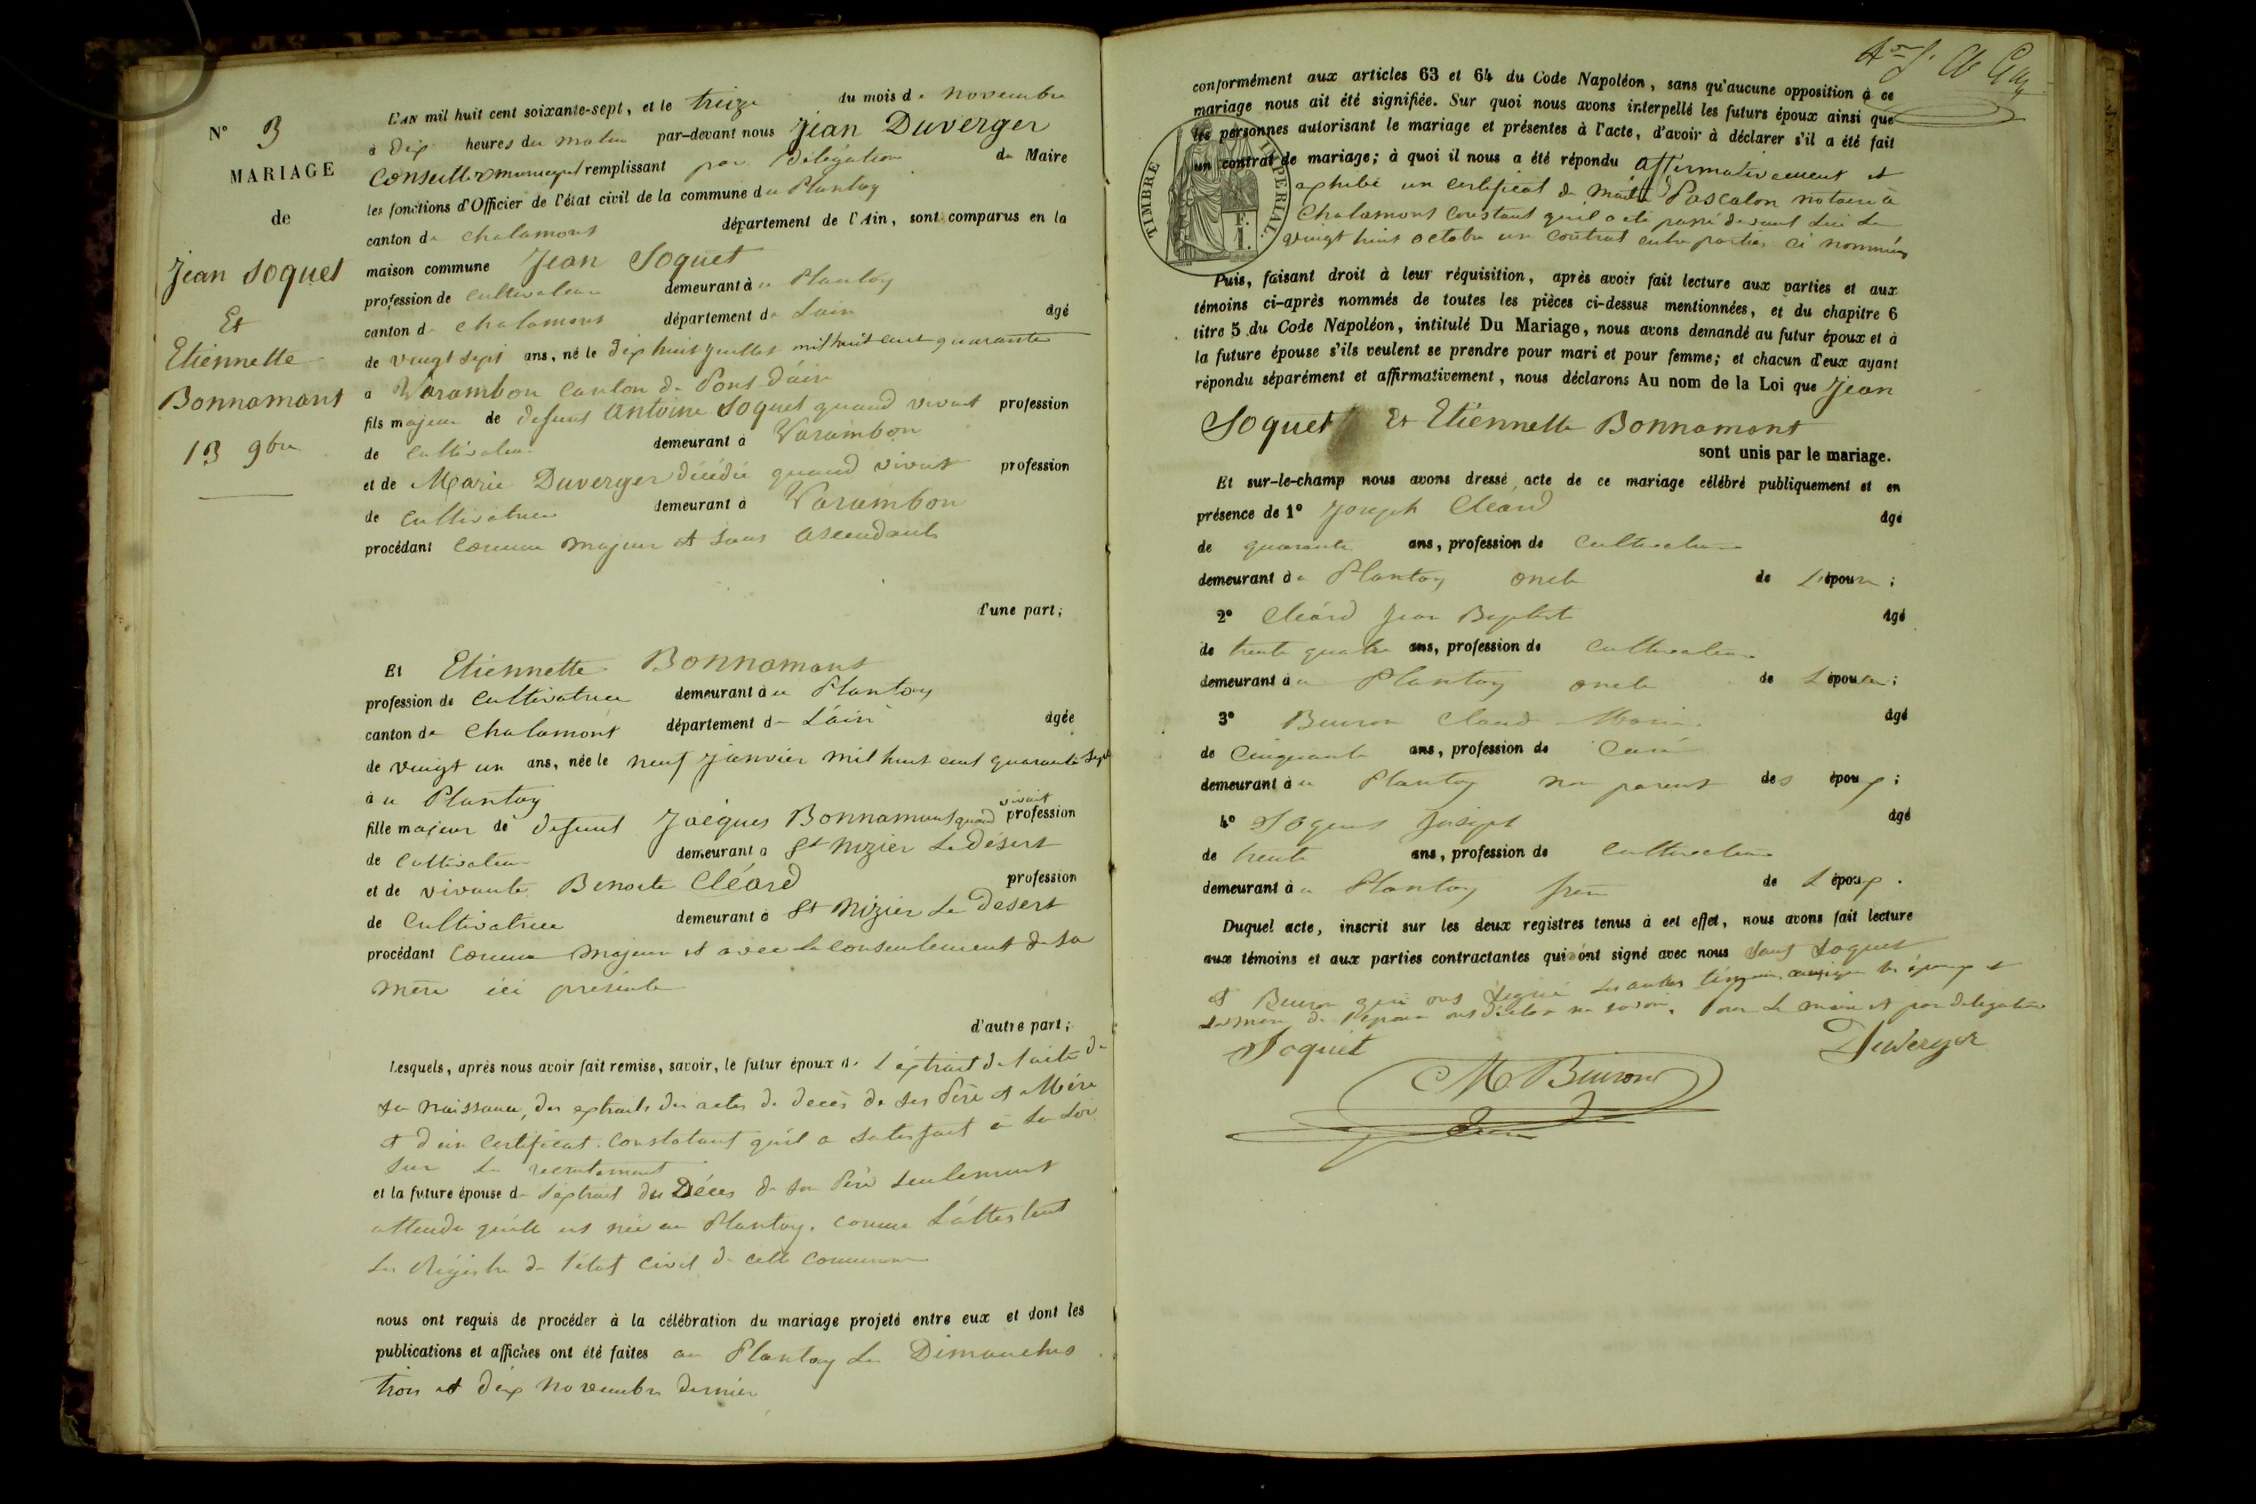 N° 3
MARIAGE
de
Jean Soquet
Et
Etiennette
Bonnamant
13 9bre
L'AN mil huit cent soixante-sept, et le treize du mois de novembre
à dix heures du matin par-devant nous Jean Duverger
Conseiller municipal remplissant par délégation du Maire
les fonctions d'Officier de l'état civil de la commune du Plantay
canton de chalamont département de l'Ain, sont comparus en la
maison commune Jean Soquet
profession de cultivateur demeurant à u Plantay
canton de chalamont département de Lain âgé
de vingt sept ans, né le dix huit juillet mil huit cent quarante
à Varambon canton de Pont d'ain
fils majeur de defunt Antoine Soquet quand vivait profession
de cultivateur demeurant à Varambon
et de Marie Duverger décédée quand vivait profession
de cultivatrice demeurant à Varambon
procédant comme majeur et sans ascendants
d'une part;
Et Etiennette Bonnamant
profession de cultivatrice demeurant à u Plantay
canton de Chalamont département de L'ain âgée
de vingt un ans, née le neuf janvier mil huit cent quarante sept
à u Plantay
fille majeur de defunt Jacques Bonnamant quand vivait profession
de cultivateur demeurant à St Nizier Le Désert
et de vivante Benoite Cléard profession
de Cultivatrice demeurant à St Nizier Le Desert
procédant comme majeur et avec le consentement de sa
mère ici présente
d'autre part;
Lesquels, après nous avoir fait remise, savoir, le futur époux de l'extrait de l'acte de
sa naissance, des extraits des actes de decès de ses Père et Mère
et d'un certificat constatant qu'il a satisfait à la Loi
sur le recrutement
et la future épouse de l'extrait du Décès de son Père seulement
attendu qu'elle est née au Plantay, comme l'attestent
les Régistre de l'état civil de cette commune
nous ont requis de procéder à la célébration du mariage projeté entre eux et dont les
publications et affiches ont été faites au Plantay les Dimanches
trois et dix novembre dernier
conformément aux articles 63 et 64 du Code Napoléon, sans qu'aucune opposition à ce
mariage nous ait été signifiée. Sur quoi nous avons interpellé les futurs époux ainsi que
les personnes autorisant le mariage et présentes à l'acte, d'avoir à déclarer s'il a été fait
un contrat de mariage; à quoi il nous a été répondu affirmativement et
exhibé un certificat de Maitre Pascalon notaire à
Chalamont constant qu'il a été passé devant lui le
vingt huit octobre un contrat entre parties ci nommées
TIMBRE IMPERIAL.
F.
1.
Puis, faisant droit à leur réquisition, après avoir fait lecture aux parties et aux
témoins ci-après nommés de toutes les pièces ci-dessus mentionnées, et du chapitre 6
titre 5 du Code Napoléon, intitulé Du Mariage, nous avons demandé au futur époux et à
la future épouse s'ils veulent se prendre pour mari et pour femme; et chacun d'eux ayant
répondu séparément et affirmativement, nous déclarons Au nom de la Loi que Jean
Soquet Et Etiennette Bonnamant
sont unis par le mariage.
Et sur-le-champ nous avons dressé acte de ce mariage célébré publiquement et en
présence de 1° Joseph Cleard âgé
de quarante ans, profession de Cultivateur
demeurant à u Plantay oncle de L'épouse;
2° Cléard Jean Baptiste âgé
de trente quatre ans, profession de cultivateur
demeurant à u Plantay oncle de L'épouse;
3° Buiron Claude Marie âgé
de Cinquante ans, profession de Curé
demeurant à u Plantay non parent des époux;
4° Soquet Joseph âgé
de trente ans, profession de Cultivateur
demeurant à u Plantay frère de L'époux.
Duquel acte, inscrit sur les deux registres tenus à cet effet, nous avons fait lecture
aux témoins et aux parties contractantes qui ont signé avec nous sauf Soquet
et Buiron qui ont signé les autres témoins ainsi que les époux et
la mère de l'épouse ont déclaré ne savoir. Pour le maire et par délégation
Soquet
Duverger
M Buiron